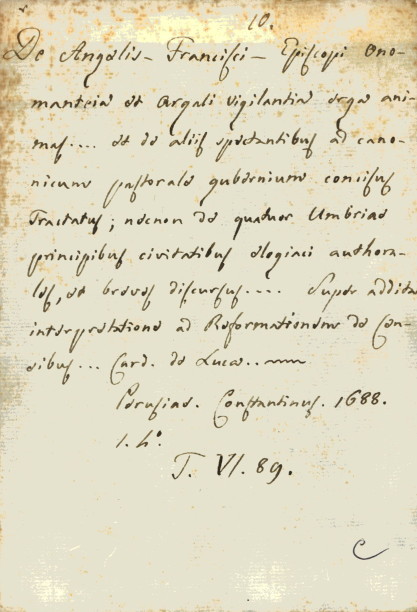 10.
De Angelis - Francisci - Episcopi Ono-
manteia et Argali vigilantia erga ani-
mas.... et de aliis spectantibus ad cano-
nicum pastorale gubernium concisus
Tractatus; necnon de quatuor Umbriae
principibus civitatibus elogiaci authora-
les, et breves discursus.... Super addita
interpretatione ad Reformationem de Cen-
sibus... Card. de Luca..
Perusiae. Constantinus. 1688.
1. 4º.
T. VI. 89.
C